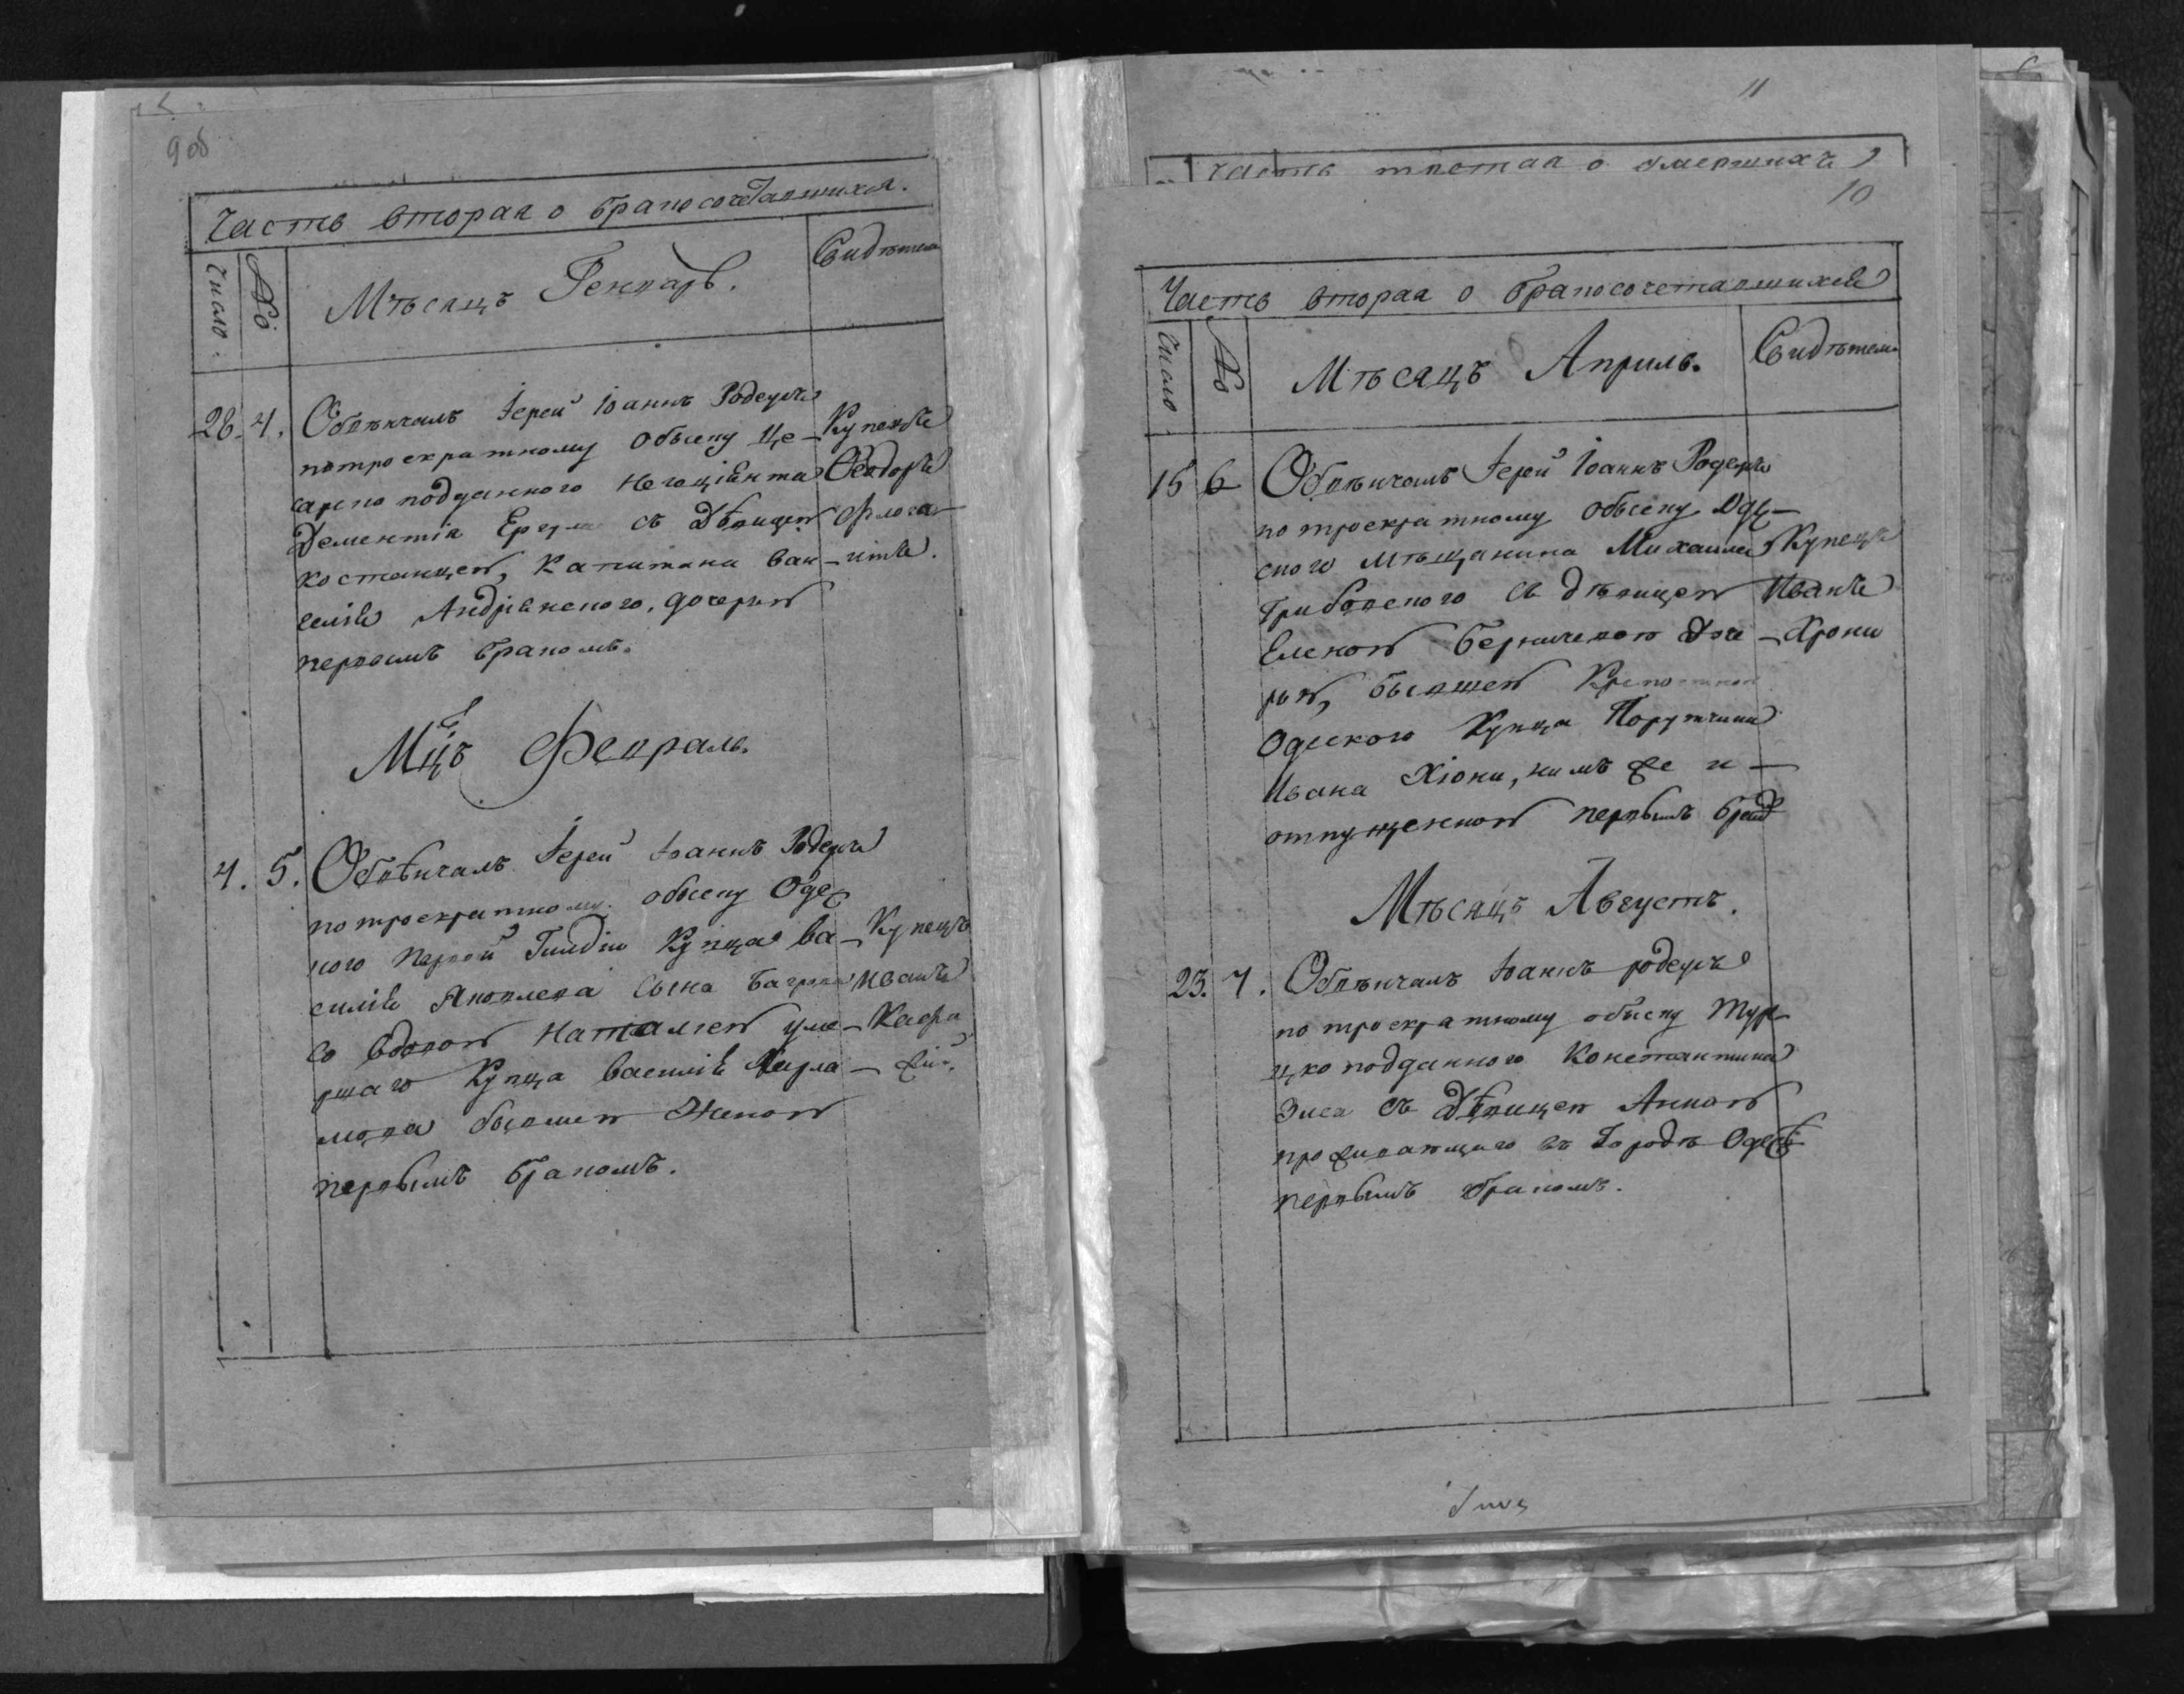 9 об
Часть вторая о бракосочетавшихся.
Число.
№
Мѣсяцъ Генварь.
Свидѣтели
28. 4. Обвѣнчалъ Іерей Іоаннъ Родесъ
потроекратному обыску Це-
сарско подданного негоціянта
Дементія съ Дѣвицею
Костанцею, Капитана Ва-
силія Андріевского, дочерью
первымъ бракомъ.
Купецъ
Ѳеодоръ
Флога-
итъ.
Мцъ Февраль.
4. 5. Обвѣнчалъ Іерей Іоаннъ Родесъ
по троекратному обыску Одес
кого Первой Гилдіи Купца Ва-
силія Яковлева сына
со вдовою Наталіею уме-
ршаго Купца Василія Варла-
мова бывшею женою
первымъ бракомъ.
Купецъ
Иванъ
Кафа
жій.
11
Часть третая о умершихъ
10
Часть вторая о бракосочетавшихся
Число
№
Мѣсяцъ Априль.
Свидѣтели
15 6 Обвѣнчалъ Іерей Іоаннъ Родесъ
по троекратному обыску Одес-
ского мѣщанина Михаила
Грибовского съ дѣвицею
Еленою доче-
рью, бывшею Крепостною
Одеского Купца Порутчика
Ивана Хіони, нимъ же и -
отпущенною первымъ брак
Купецъ
Иванъ
Хрони
Мѣсяцъ Августъ.
23. 7. Обвѣнчалъ Іоаннъ родесъ
по троекратному обыску Тур-
цко подданного Константина
съ Дѣвицею Анною
проживающаго въ Городѣ Одес
первымъ бракомъ.